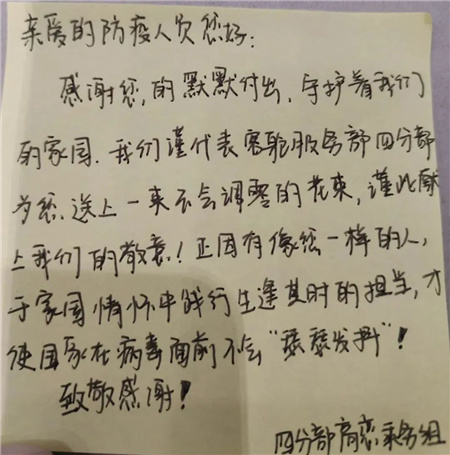 亲爱的防疫人员您好:
感谢您,的默默付出,守护着我们
的家园.我们谨代表客舱服务部四分部
为您.送上一束不会凋零的花束,谨此献
上我们的敬意!正因有像您一样的人,
于家国情怀中践行生逢其时的担当,才
使国家在病毒面前不会“瑟瑟发抖”!
致敬感谢!
四分部 乘务组